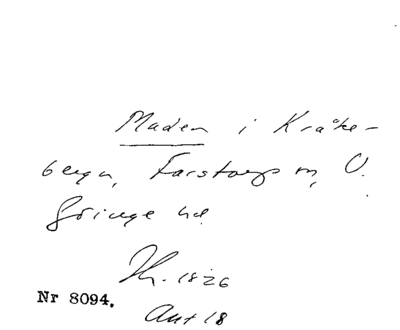 Maden i Kråke-
bergn, Farstorps sn, V.
Göinge hd.
Th. 1826
Nr 8094.
Aut 18